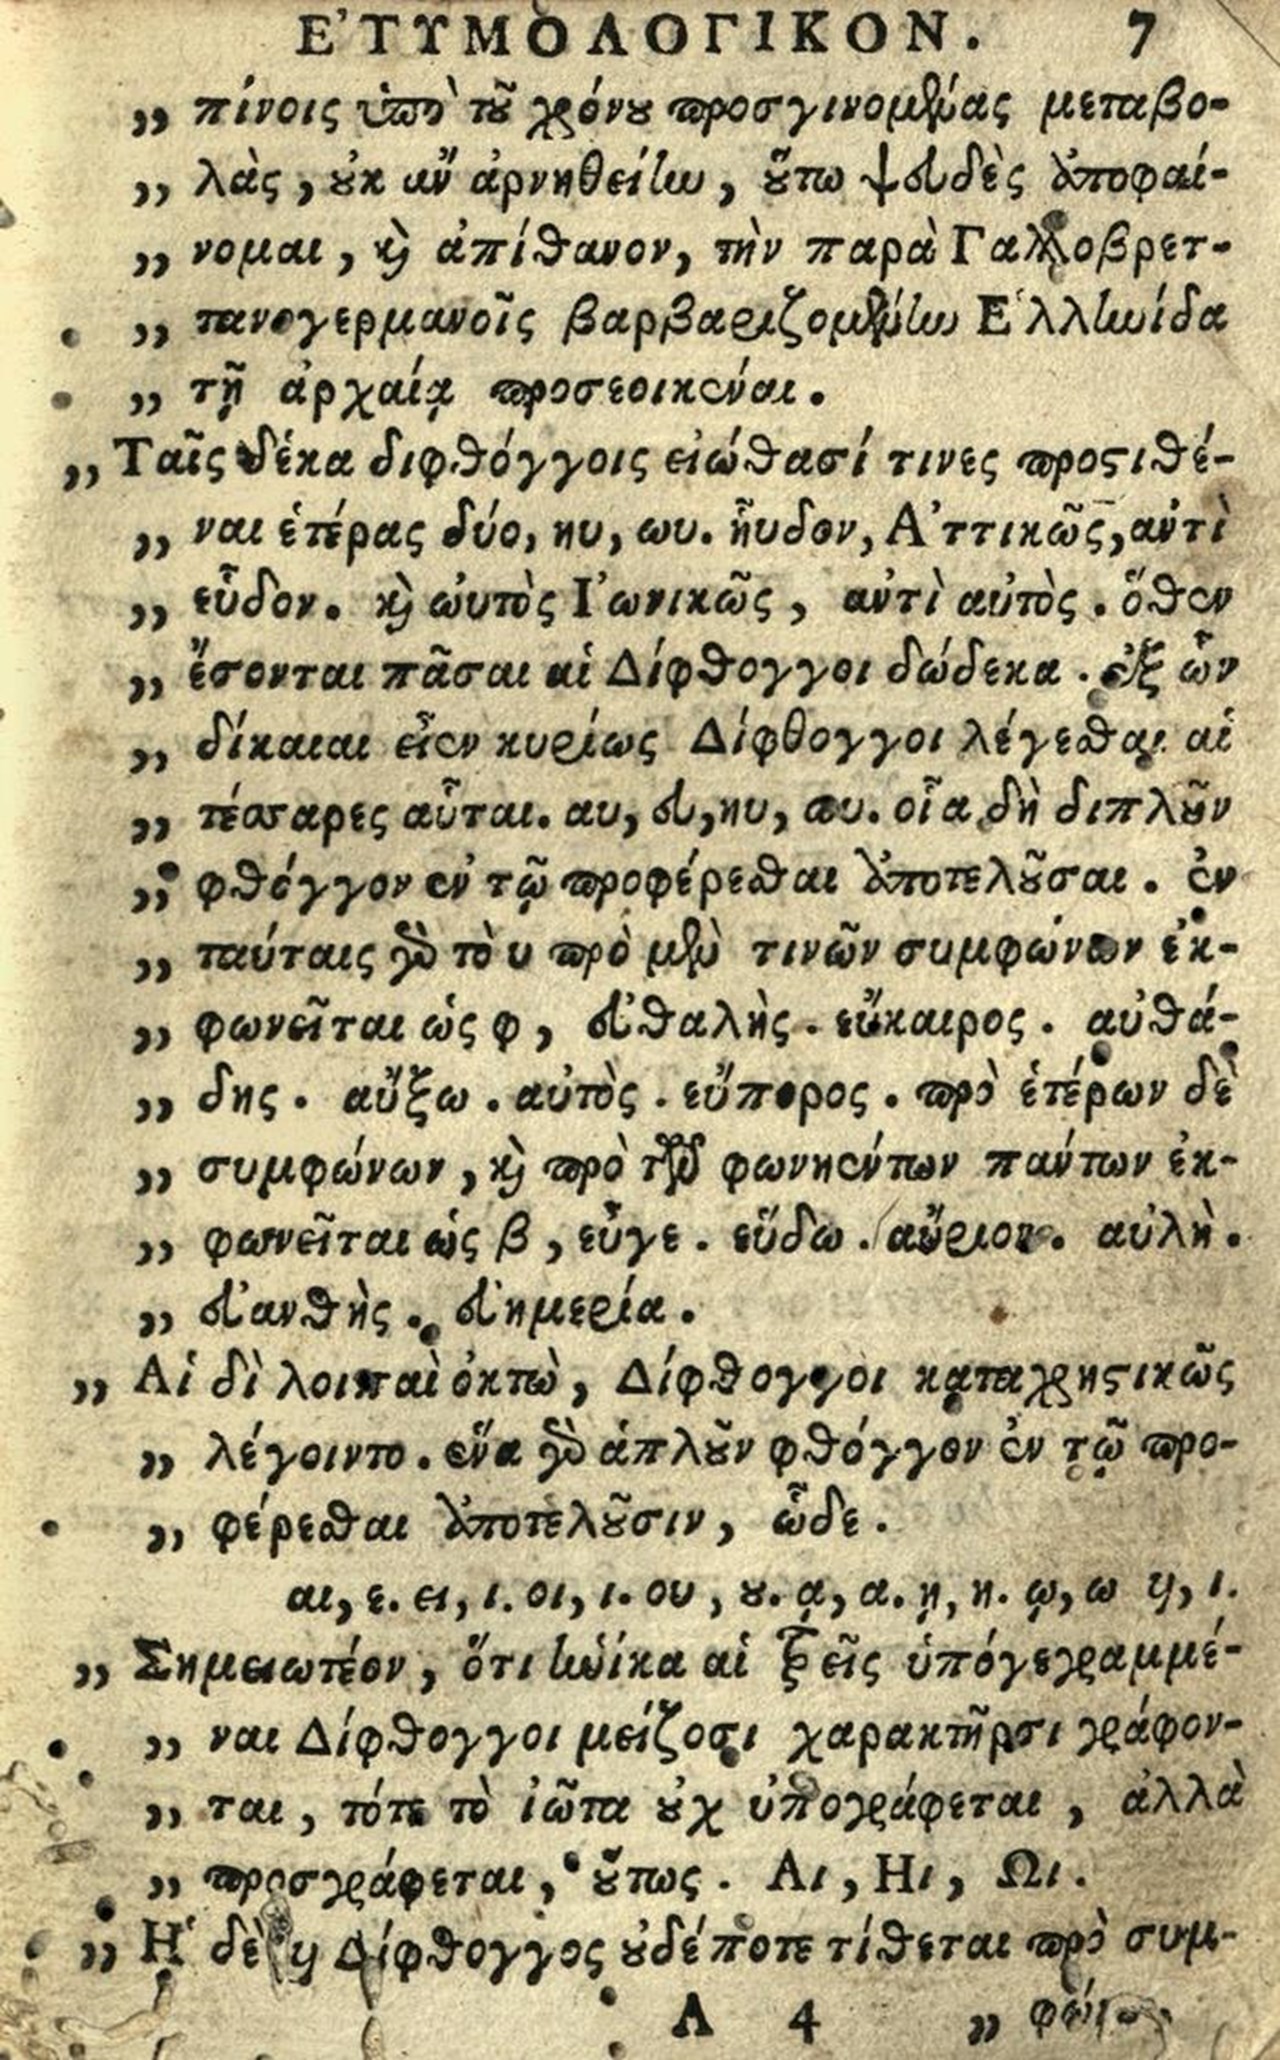 ΕΤΥΜΟΛΟΓΙΚΟΝ. 7
„ τίνοις ὑπὸ τοῦ χρόνου προσγινομένας μεταβο-
„ λὰς, οὐκ ἂν ἀρνηθείην, οὕτω ψευδὲς ἀποφαί-
„ νομαι, καὶ ἀπίθανον, τὴν παρὰ Γαλλοβρετ-
„ τανογερμανοῖς βαρβαριζομένην Ἑλληνίδα
„ τῇ ἀρχαίᾳ προσεοικέναι.
„ Ταῖς δέκα διφθόγγοις εἰώθασί τινες προστιθέ-
„ ναι ἑτέρας δύο, ηυ, ωυ. ηὗδον, Ἀττικῶς, ἀντὶ
„ εὗδον. καὶ ωὑτὸς Ἰωνικῶς, ἀντὶ αὐτὸς. ὅθεν
„ ἔσονται πᾶσαι αἱ Δίφθογγοι δώδεκα. ἐξ ὧν
„ δίκαιαι εἶεν κυρίως Δίφθογγοι λέγεσθαι αἱ
„ τέσσαρες αὗται. αυ, ευ, ηυ, ωυ. οἷα δὴ διπλοῦν
„ φθόγγον ἐν τῷ προφέρεσθαι ἀποτελοῦσαι. ἐν
„ ταύταις γὰρ τὸ υ πρὸ μὲν τινῶν συμφώνων ἐκ-
„ φωνεῖται ὡς φ, εὐθαλὴς. εὔκαιρος. αὐθά-
„ δης. αὔξω. αὐτὸς. εὔπορος. πρὸ ἑτέρων δὲ
„ συμφώνων, καὶ πρὸ τῶν φωνηέντων πάντων ἐκ-
„ φωνεῖται ὡς β, εὖγε. εὕδω. αὔριον. αὐλὴ.
„ εὐανθὴς. εὐημερία.
„ Αἱ δὲ λοιπαὶ ὀκτὼ, Δίφθογγοι καταχρηστικῶς
„ λέγοιντο. ἕνα γὰρ ἁπλοῦν φθόγγον ἐν τῷ προ-
„ φέρεσθαι ἀποτελοῦσιν, ὧδε.
αι, ε. ει, ι. οι, ι. ου, ȣ. ᾳ, α. ῃ, η. ῳ, ω υι, ι.
„ Σημειωτέον, ὅτι ἡνίκα αἱ τρεῖς ὑπόγεγραμμέ-
„ ναι Δίφθογγοι μείζοσι χαρακτῆρσι γράφον-
„ ται, τότε τὸ ἰῶτα οὐχ ὑπογράφεται, ἀλλὰ
„ προσγράφεται, οὕτως. Αι, Ηι, Ωι.
„ Ἡ δὲ υι Δίφθογγος οὐδέποτε τίθεται πρὸ συμ-
A 4 „